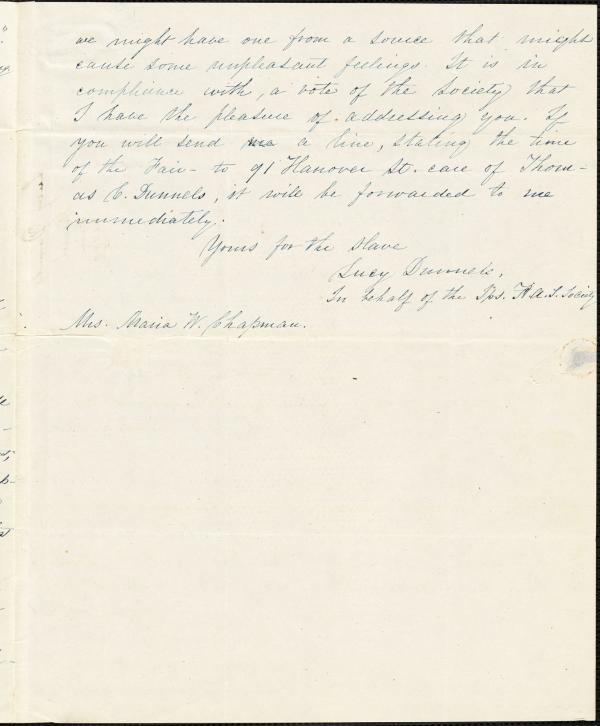 we might have one from a source that might
cause some unpleasant feelings. It is in
compliance with, a vote of the Society that
I have the pleasure of addressing you. If
you will send me a line, stating the time
of the Fair - to 91 Hanover St. care of Thom-
as C. Dunnels, it will be forwarded to me
immediately.
Yours for the slave
Lucy Dunnels,
In behalf of the F. A. S. Society
Mrs. Maria W. Chapman.